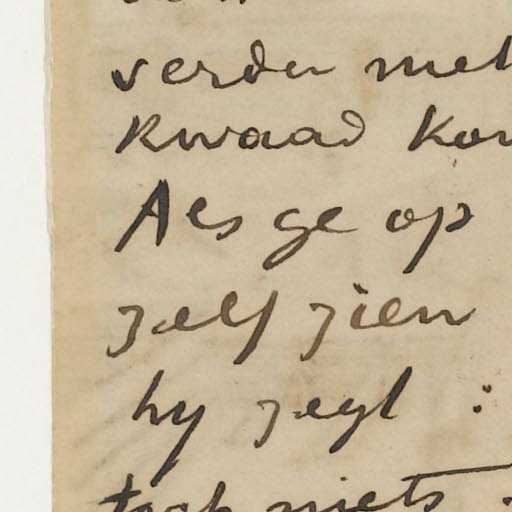 verder met
kwaad kon
Als ge op
zelf zien
hy zegt :
toch niets